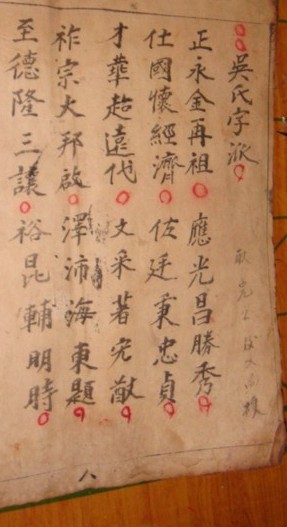 吳氏字派
正永金再祖 應光昌勝秀
仕國懷經濟 佐廷秉忠貞
才華超遠代 文采著宏猷
祚宗大邦啟 澤沛海東題
至德隆三讓 裕昆輔明時
八